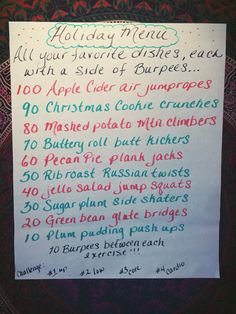 Holiday Menu
All your favorite dishes, each
with a side of Burpees...
100 Apple Cider air jumpropes
90 Christmas Cookie crunches
80 Mashed potato Mtn. climbers
70 Buttery roll butt kickers
60 Pecan Pie plank jacks
50 Rib roast Russian twists
40 jello salad jump squats
30 Sugar plum side skaters
20 Green bean glute bridges
10 Plum pudding push ups
10 Burpees between each
exercise!!!
Challenge: #1 up #2 low #3 core #4 cardio